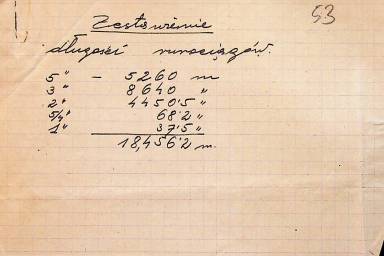 53
Zestawienie
długości rurociągów.
5" - 5260 m
3" 8,640 "
2" 4450'5 "
5/4" 68'2 "
1" 37'5 "
18,456'2 m.